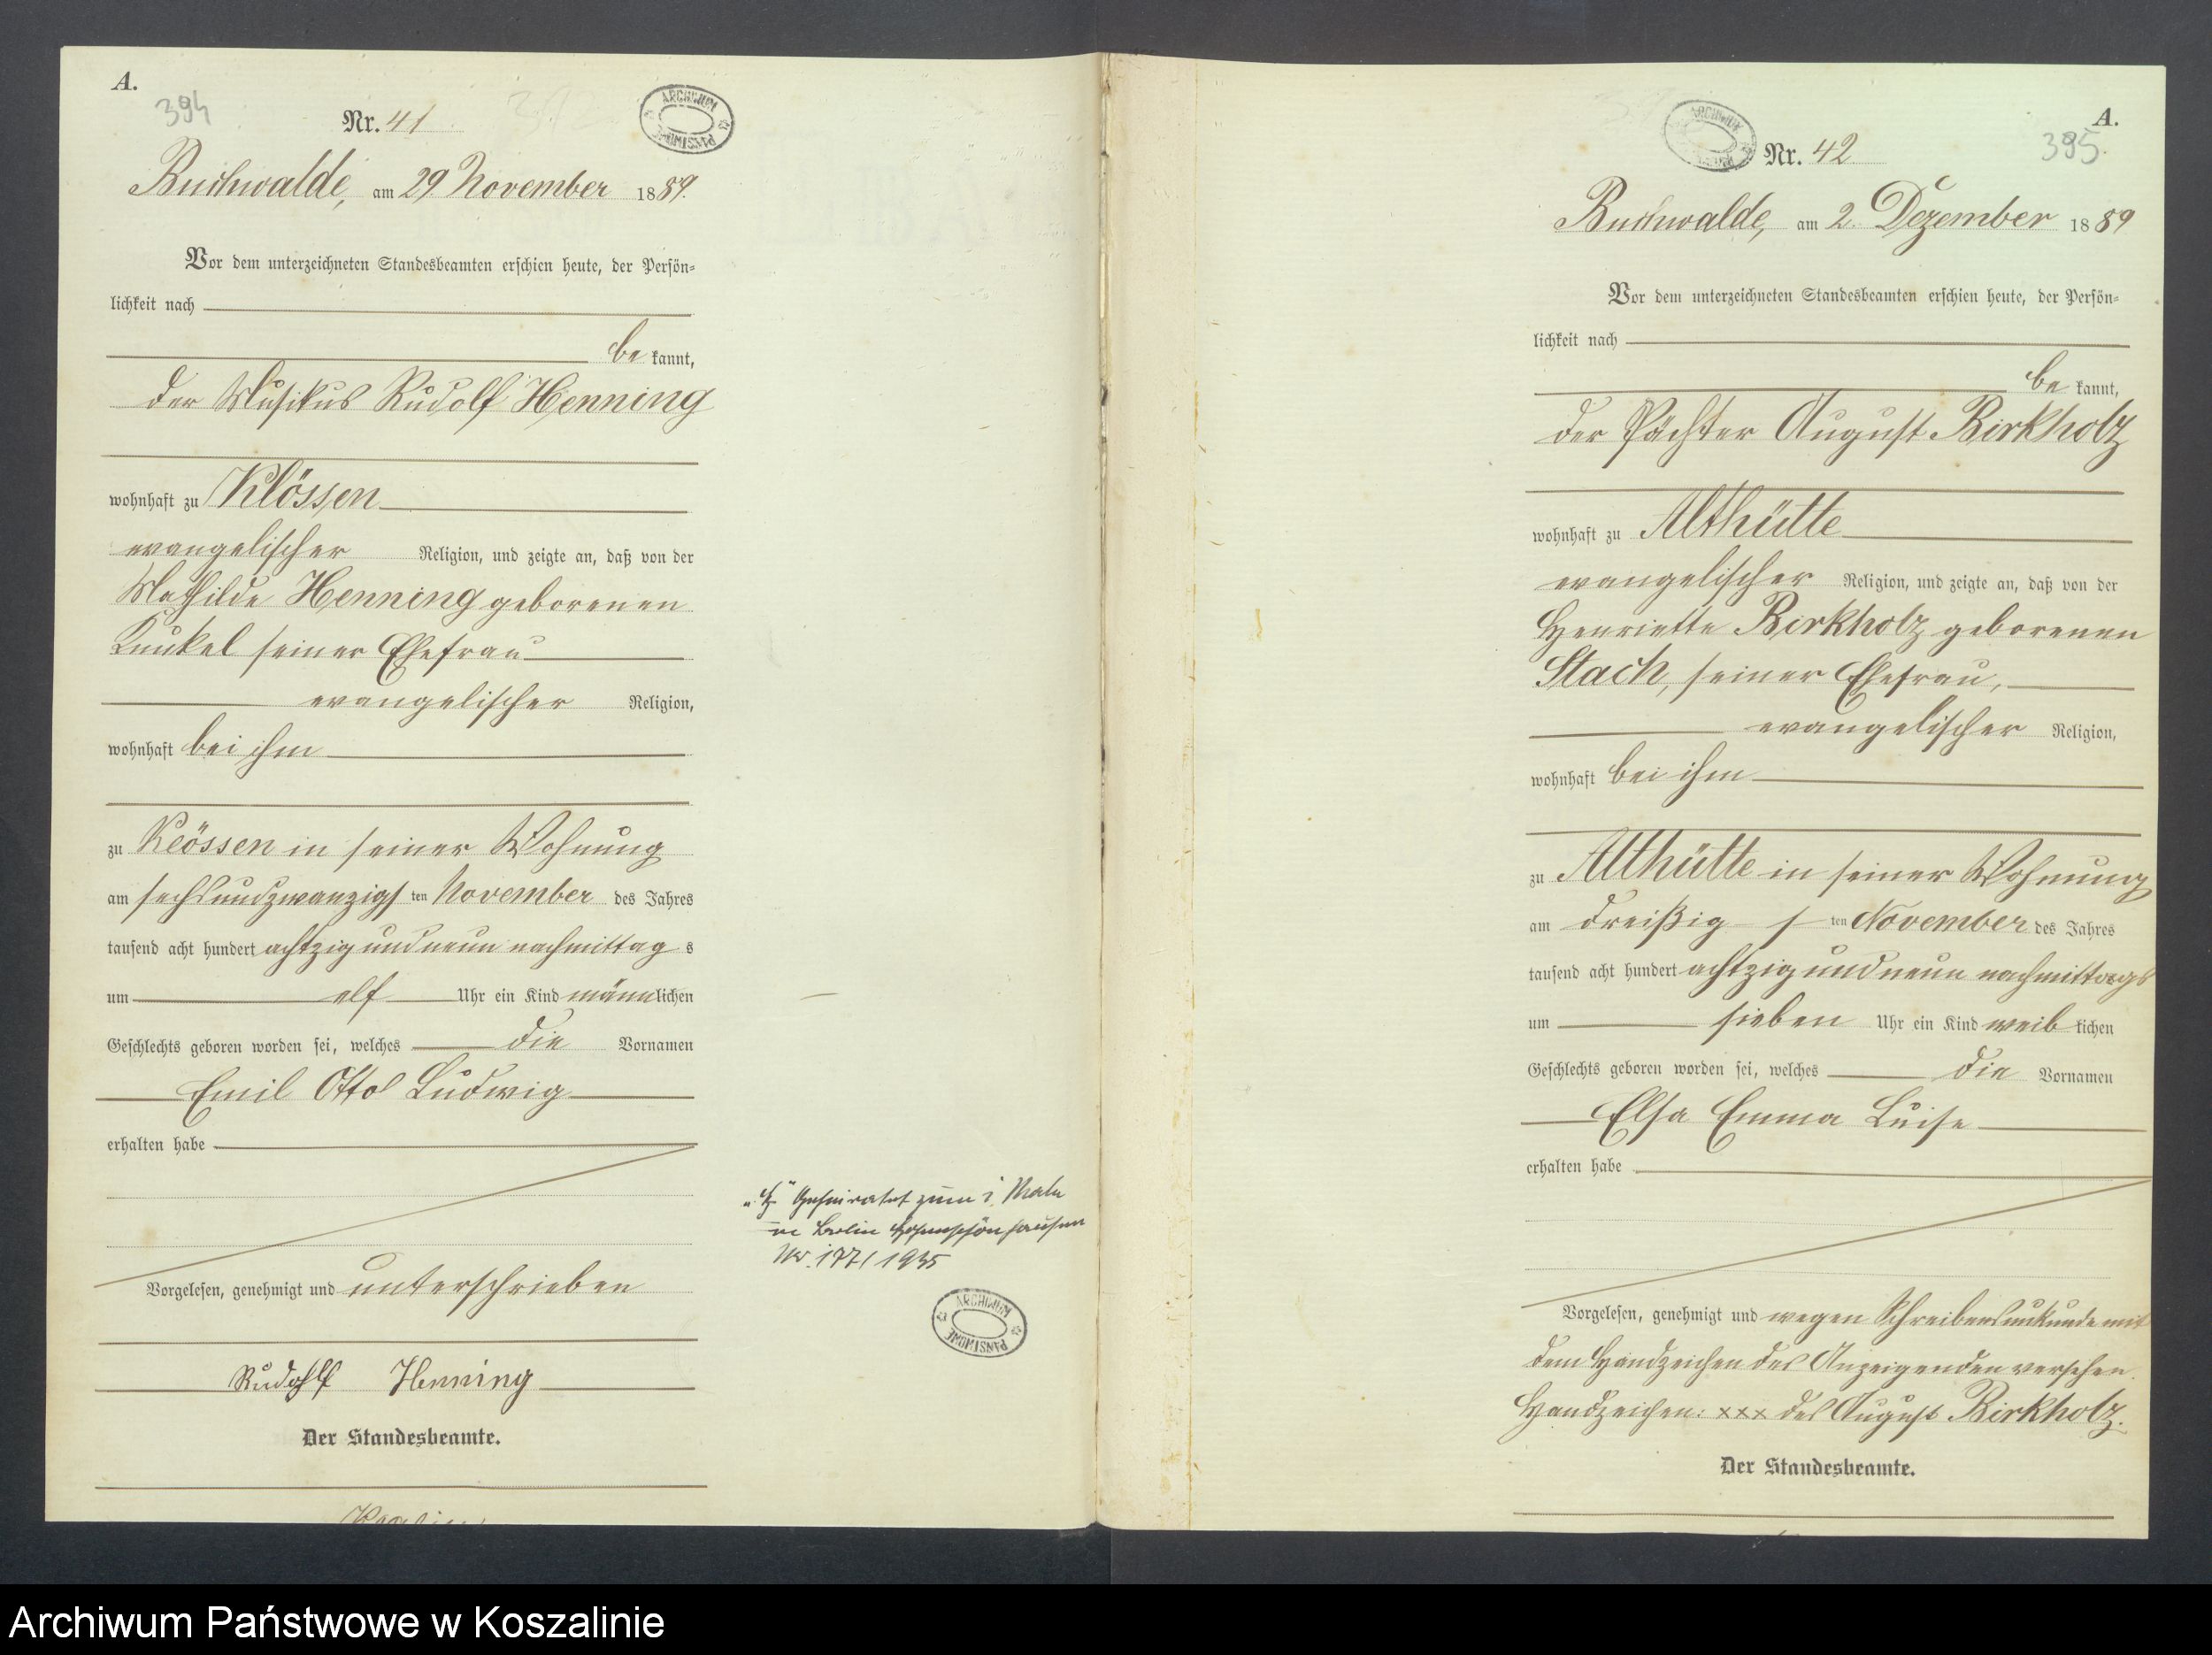 A.
394
Nr. 41
ARCHIWUM PAŃSTWOWE
Buchwalde, am 29. November 1889.
Vor dem unterzeichneten Standesbeamten erschien heute, der Persön-
lichkeit nach
be kannt,
der Musikus Rudolf Henning
wohnhaft zu Klössen
evangelischer Religion, und zeigte an, daß von der
Mathilde Henning geborenen
Kunkel seiner Ehefrau
evangelischer Religion,
wohnhaft bei ihm
zu Klössen in seiner Wohnung
am sechsundzwanzigs ten November des Jahres
tausend acht hundert achtzig und neun nachmittag s
um elf Uhr ein Kind männlichen
Geschlechts geboren worden sei, welches die Vornamen
Emil Otto Ludwig
erhalten habe
Vorgelesen, genehmigt und unterschrieben
Rudolf Henning
Der Standesbeamte.
Geheiratet zum 1. Male
in Berlin Hohenschönhausen
Nr. 177/1935
ARCHIWUM PAŃSTWOWE
ARCHIWUM
A.
Nr. 42
395
Buchwalde, am 2. Dezember 1889
Vor dem unterzeichneten Standesbeamten erschien heute, der Persön-
lichkeit nach
be kannt,
der Pächter August Birkholz
wohnhaft zu Althütte
evangelischer Religion, und zeigte an, daß von der
Henriette Birkholz geborenen
Stach, seiner Ehefrau,
evangelischer Religion,
wohnhaft bei ihm
zu Althütte in seiner Wohnung
am dreißig s ten November des Jahres
tausend acht hundert achtzig und neun nachmittags
um sieben Uhr ein Kind weib lichen
Geschlechts geboren worden sei, welches die Vornamen
Elsa Emma Luise
erhalten habe
Vorgelesen, genehmigt und wegen Schreibensunkunde mit
dem Handzeichen des Anzeigenden versehen.
Handzeichen: xxx des August Birkholz.
Der Standesbeamte.
Archiwum Państwowe w Koszalinie